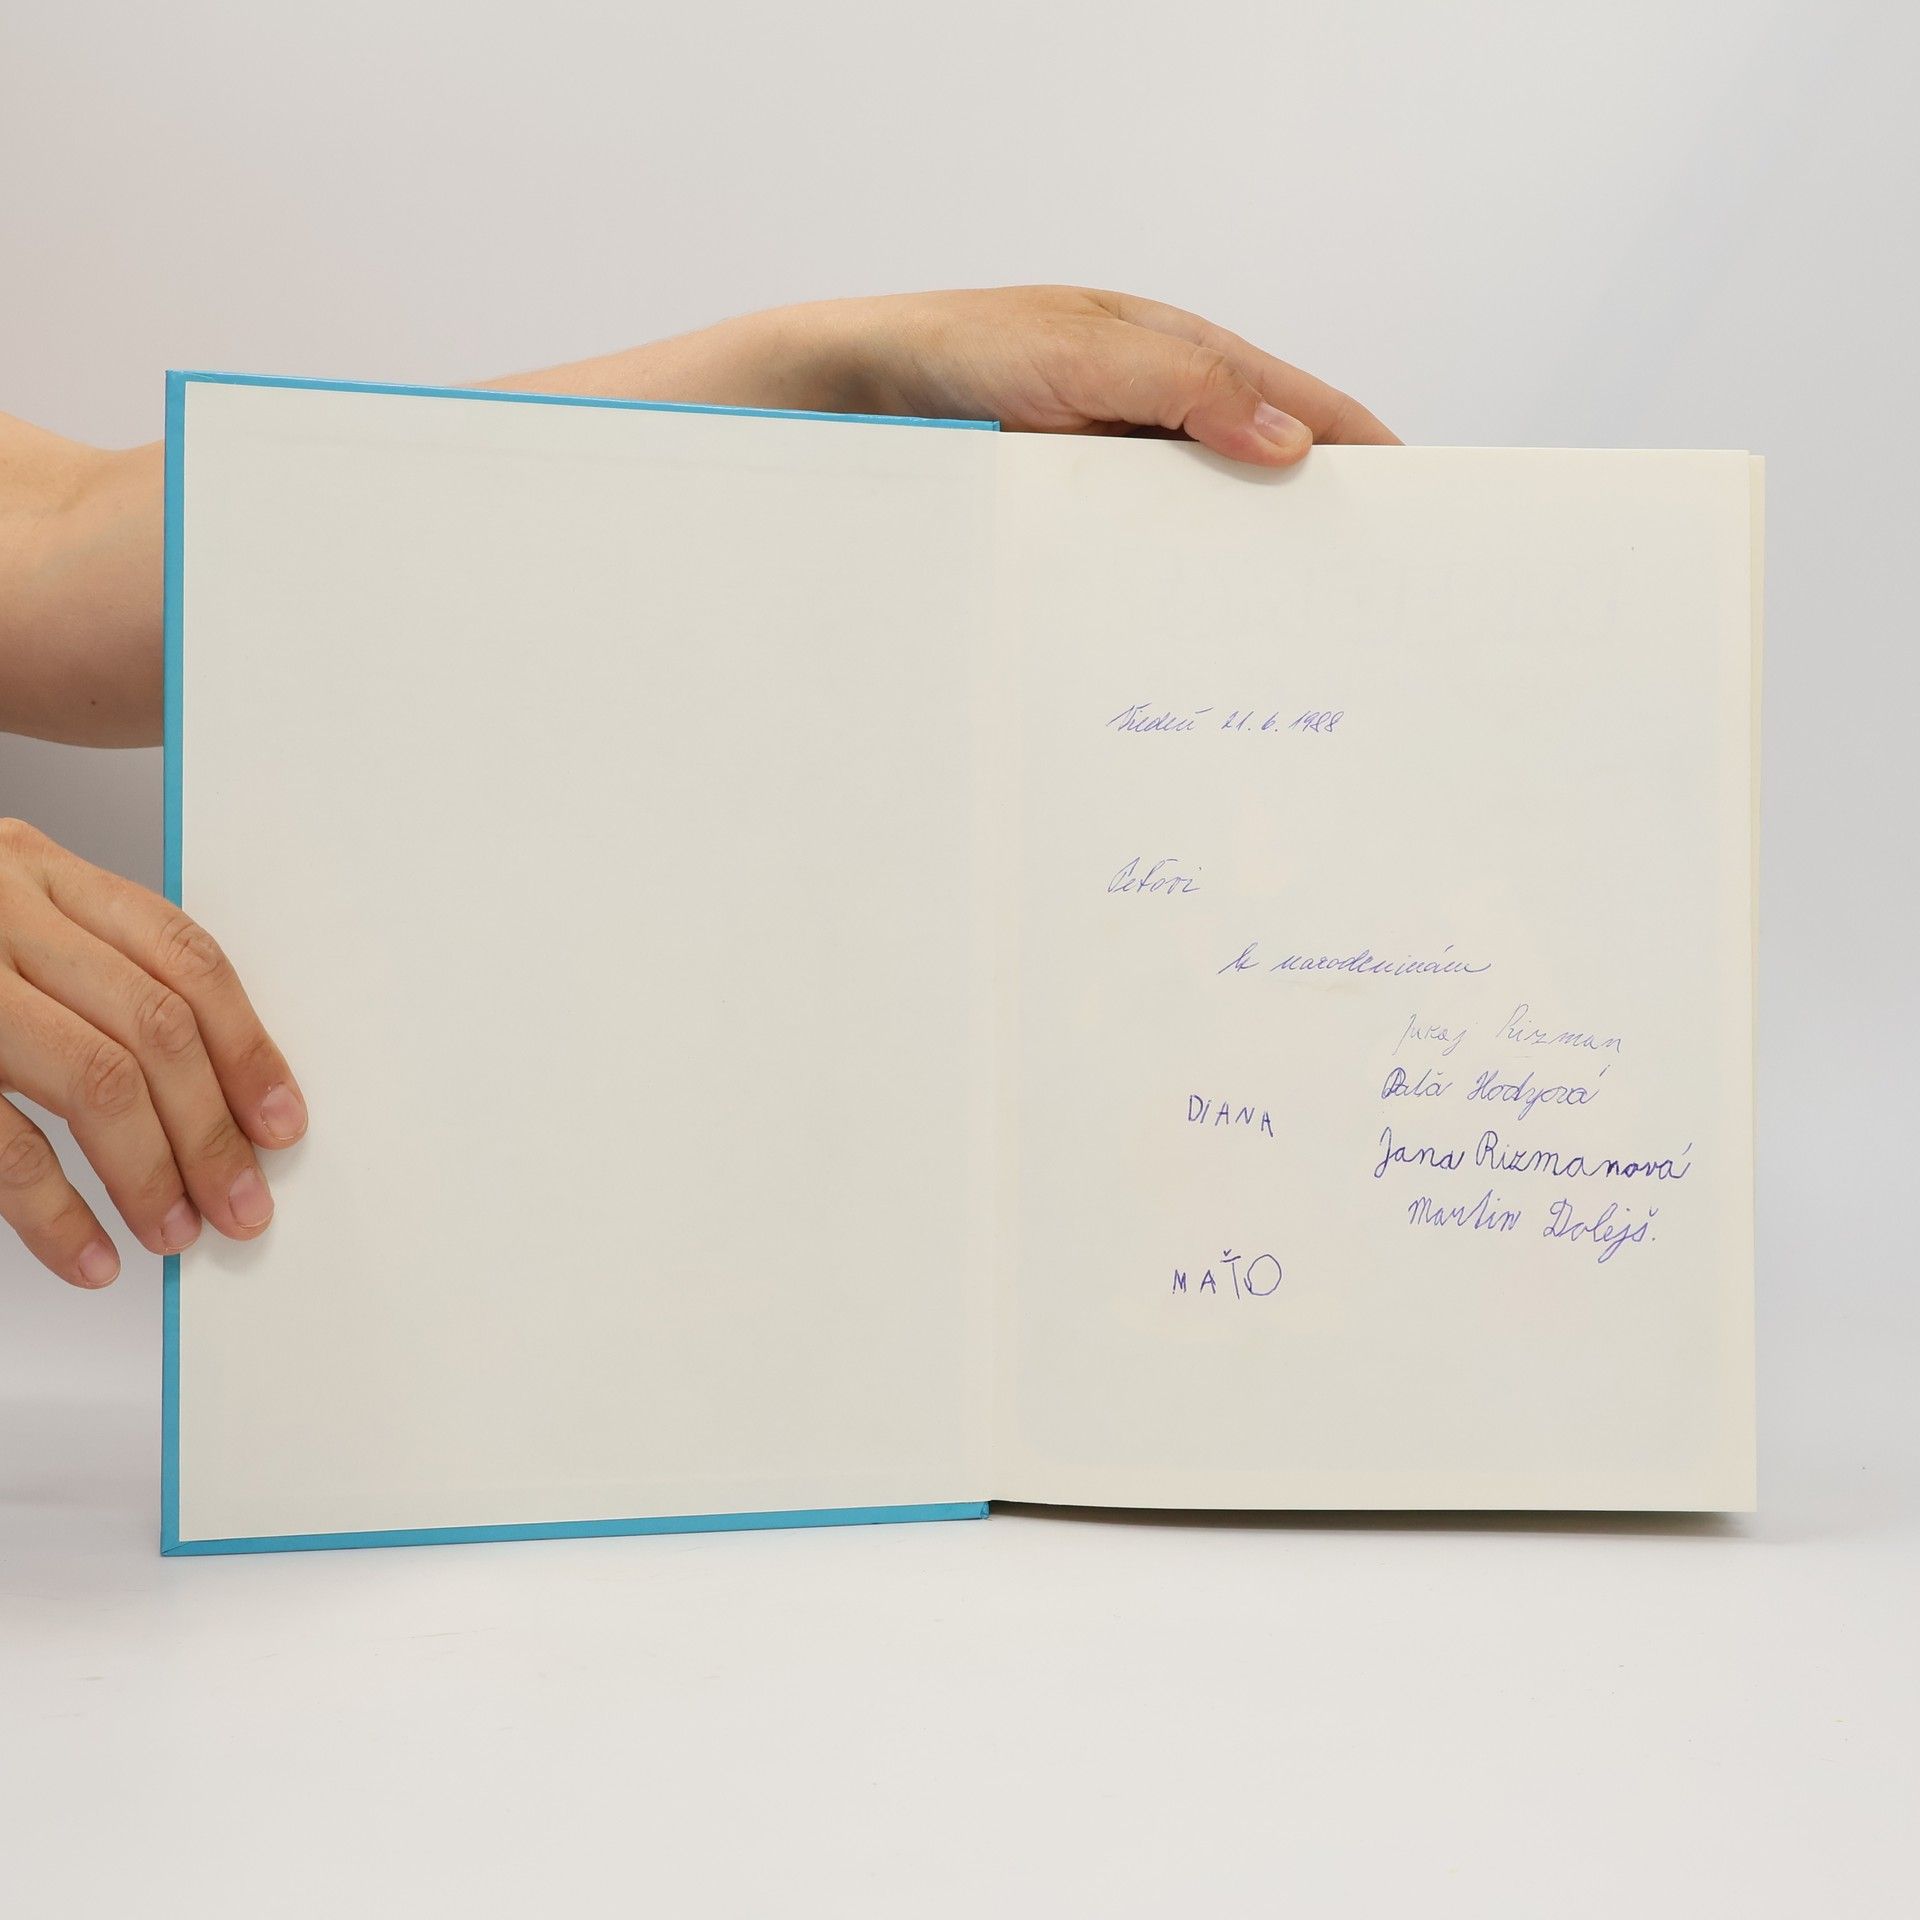 Viedeň 21. 6. 1988
Peťovi
k narodeninám
Juraj Rizman
Hodyová
DIANA
Jana Rizmanová
Martin Dolejš.
MAŤO